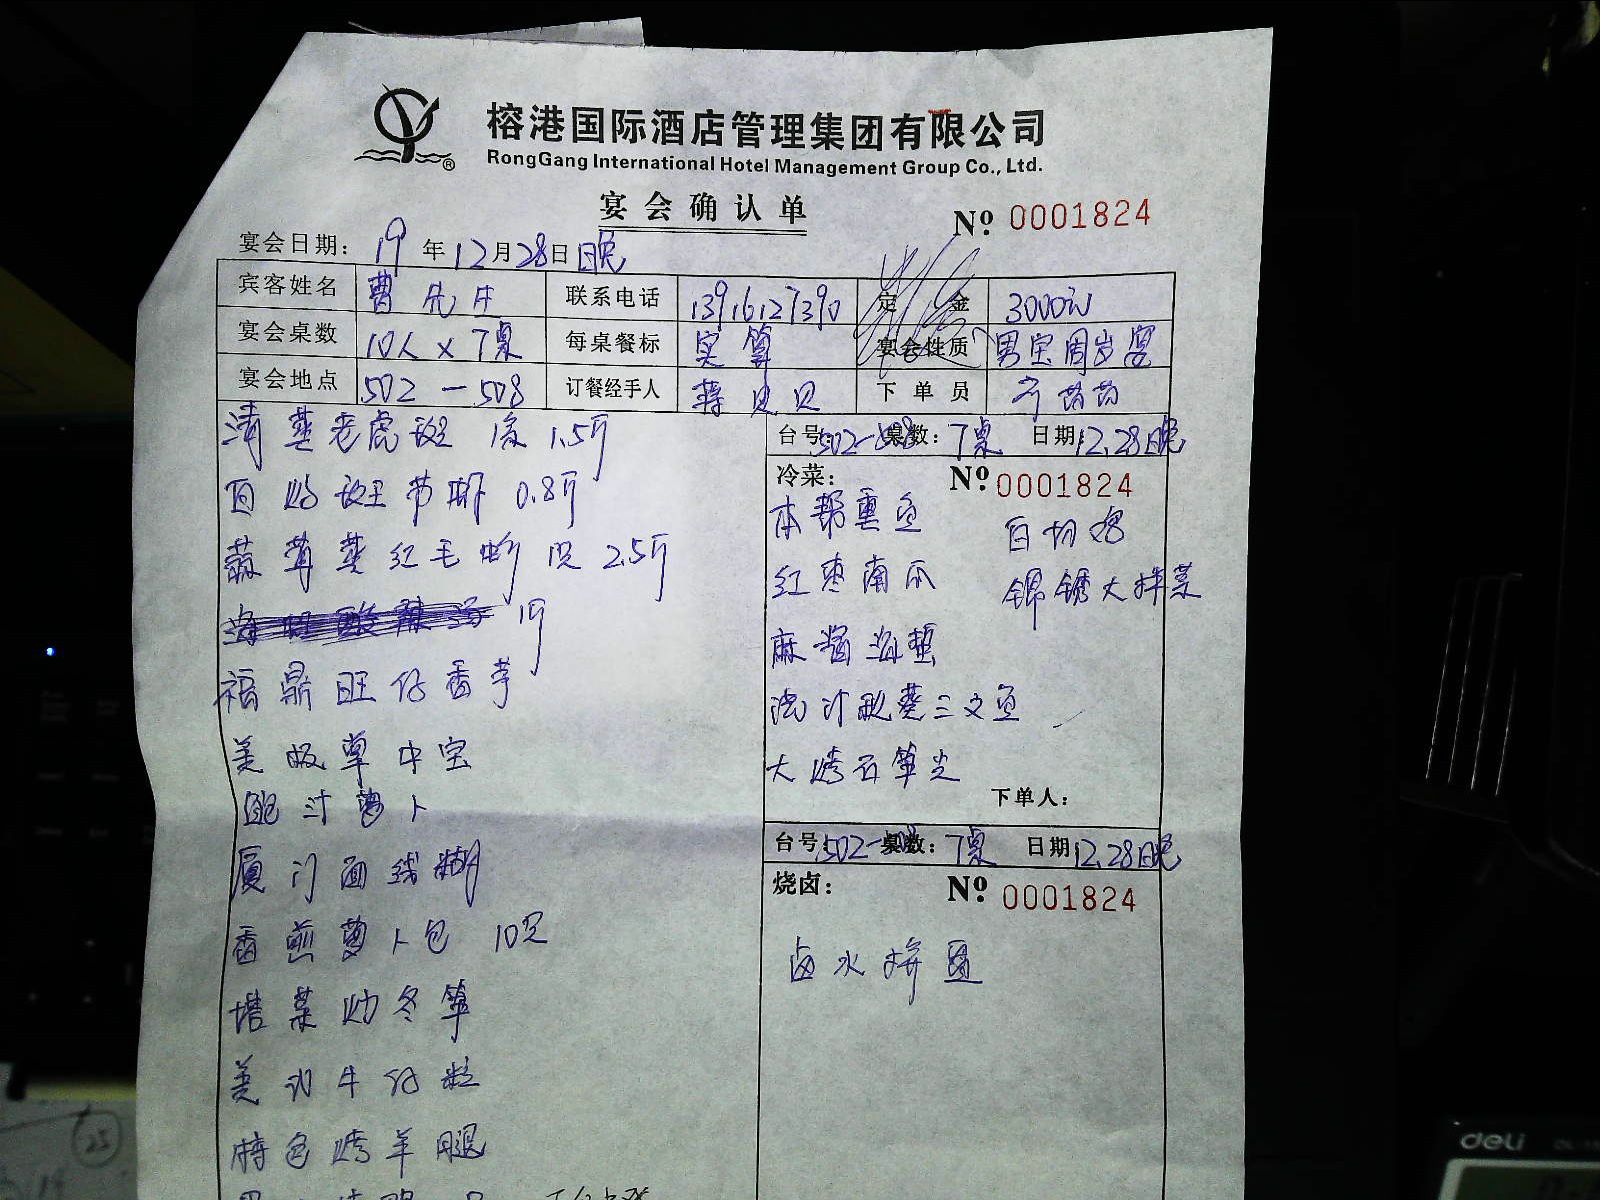 榕港国际酒店管理集团有限公司
RongGang International Hotel Management Group Co., Ltd.
宴会确认单
№ 0001824
宴会日期: 19年12月28日晚
宾客姓名 曹先生 联系电话 13916127390 定金 3000元
宴会桌数 10人×7桌 每桌餐标 实算 宴会性质 男宝周岁宴
宴会地点 502-508 订餐经手人 蒋贝贝 下单员
清蒸老虎斑 1条 1.5斤
0.8斤
蒜茸蒸红毛蟹 1只 2.5斤
1斤
福鼎旺仔香芋
美极草中宝
鲍汁萝卜
厦门面线糊
香煎萝卜包 10只
塔菜炒冬笋
牛仔粒
特色烤羊腿
台号: 502-508 桌数: 7桌 日期: 12.28晚
冷菜: № 0001824
本帮熏鱼 白切鸡
红枣南瓜 锦绣大拌菜
麻酱海蜇
汁秋葵三文鱼
大烤石笋尖
下单人:
台号: 502-508 桌数: 7桌 日期: 12.28晚
烧卤: № 0001824
卤水拼盘
deli
25